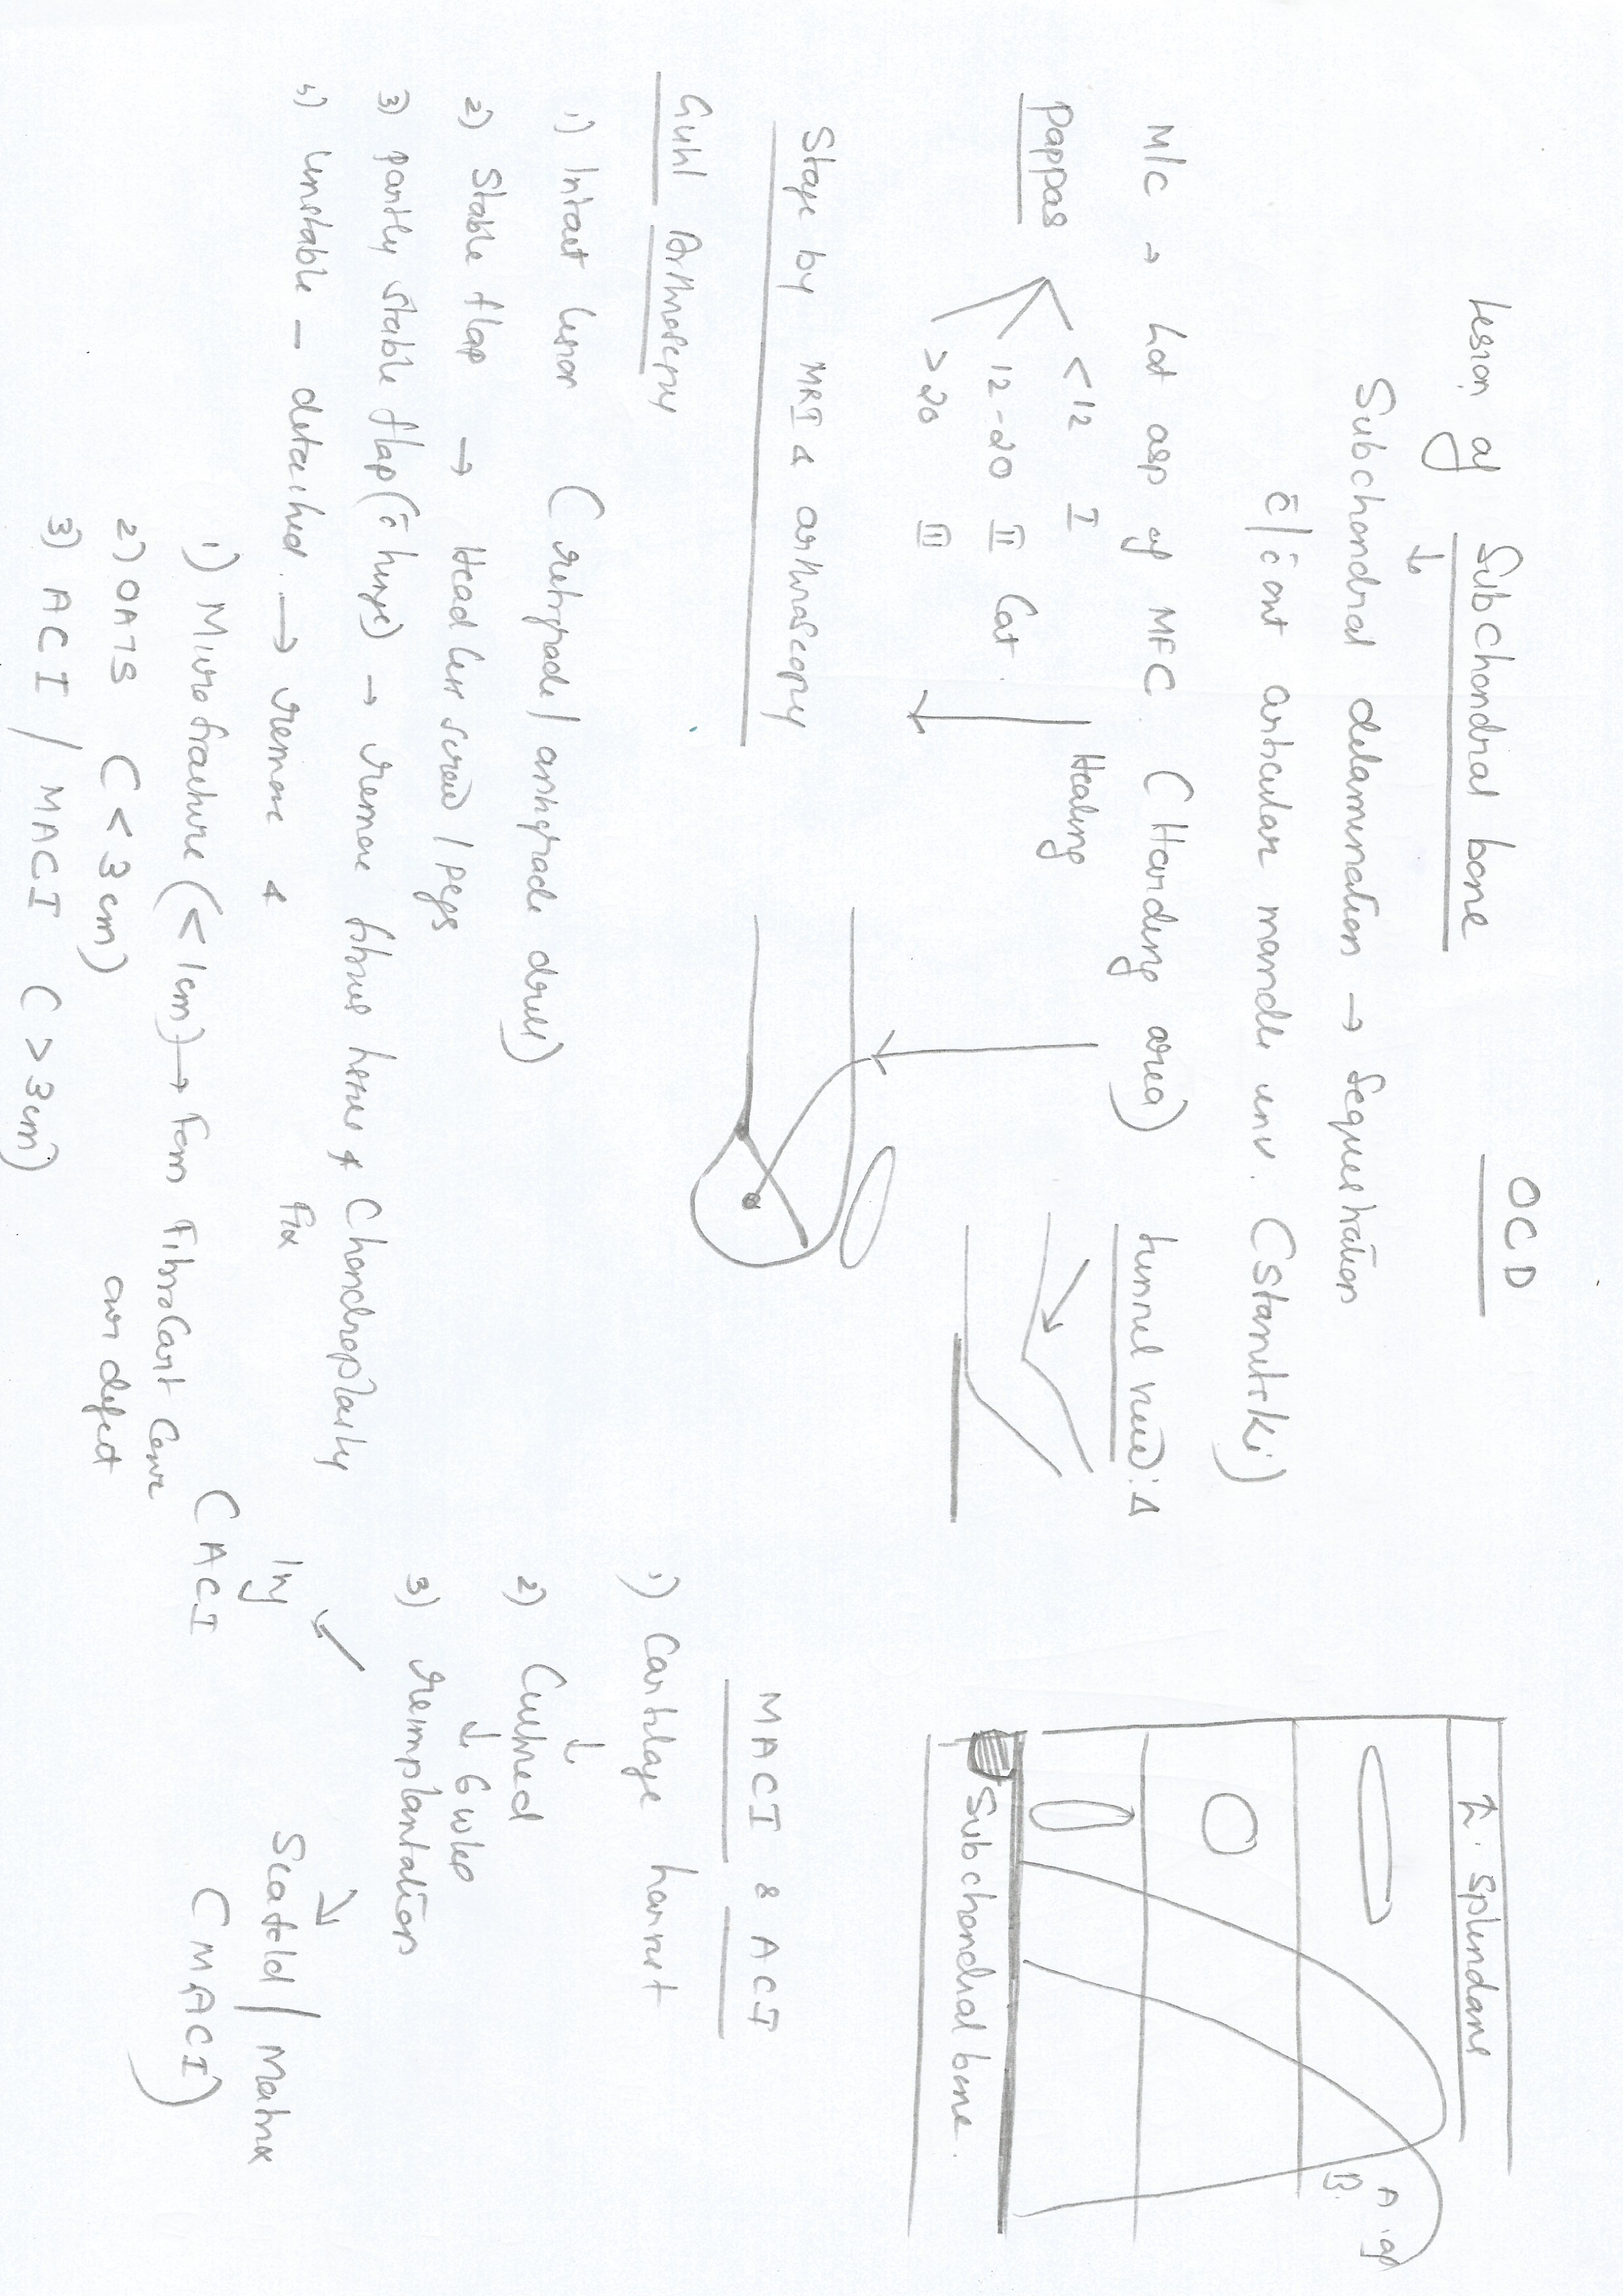 OCD
Lesion of Subchondral bone
↓
Subchondral delamination → Sequestration
c̄/c̄out articular mandle inv. (Stanitski)
M/C → Lat asp of MFC (Harding area)
tunnel view: Δ
Pappas
<12 I
12-20 II Cat.
>20 III
Healing
Stage by MRI & arthroscopy
Guhl Arthroscopy
1) Intact lesion (retrgrade/antigrade drill)
2) Stable flap → Head less screw / pegs
3) partly stable flap (c̄ hinge) → remove fibrous tissue & Chondroplasty
Fix
4) unstable - detached → remove &
1) Microfracture (<1cm) → Form FibroCart Cover
over defect
2) OATS (<3cm)
3) ACI / MACI (>3cm)
Splendans
A. of
B.
Subchondral bone.
MACI & ACI
1) Cartilage harvest
↓
2) Cultured
↓ 6 wks
3) reimplantation
Inj
(ACI
Scafold / Matrix
(MACI)